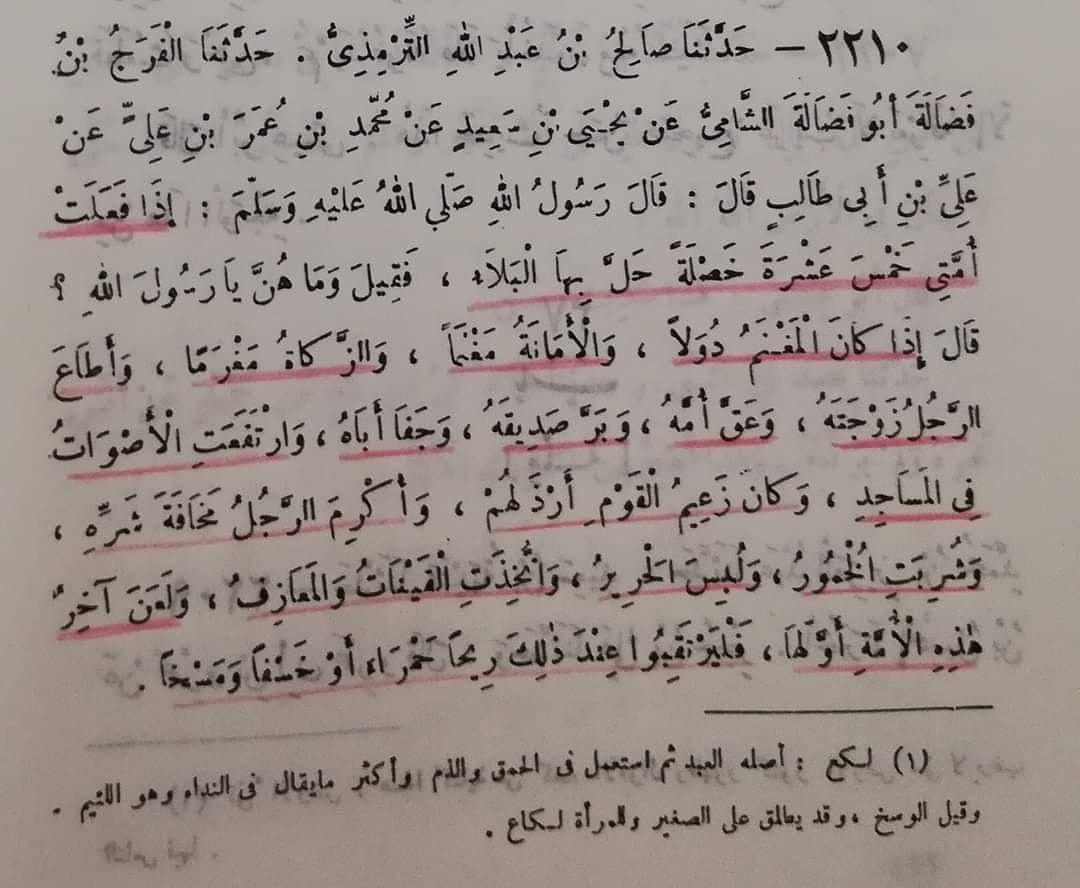 ٢٢١٠ – حَدَّثَنَا صَالِحُ بْنُ عَبْدِ اللهِ التِّرْمِذِىُّ . حَدَّثَنَا الْفَرَجُ بْنُ
فَضَالَةَ أَبُو فَضَالَةَ الشَّامِىُّ عَنْ يَحْيَى بْنِ سَعِيدٍ عَنْ مُحَمَّدِ بْنِ عُمَرَ بْنِ عَلِىٍّ عَنْ
عَلِىِّ بْنِ أَبِى طَالِبٍ قَالَ : قَالَ رَسُولُ اللهِ صَلَّى اللهُ عَلَيْهِ وَسَلَّمَ : إِذَا فَعَلَتْ
أُمَّتِى خَمْسَ عَشْرَةَ خَصْلَةً حَلَّ بِهَا الْبَلَاءُ ، فَقِيلَ وَمَا هُنَّ يَا رَسُولَ اللهِ ؟
قَالَ إِذَا كَانَ الْمَغْنَمُ دُوَلاً ، وَالْأَمَانَةُ مَغْنَمًا ، وَالزَّكَاةُ مَغْرَمًا ، وَأَطَاعَ
الرَّجُلُ زَوْجَتَهُ ، وَعَقَّ أُمَّهُ ، وَبَرَّ صَدِيقَهُ ، وَجَفَا أَبَاهُ ، وَارْتَفَعَتِ الْأَصْوَاتُ
فِى الْمَسَاجِدِ ، وَكَانَ زَعِيمُ الْقَوْمِ أَرْذَلَهُمْ ، وَأُكْرِمَ الرَّجُلُ مَخَافَةَ شَرِّهِ ،
وَشُرِبَتِ الْخُمُورُ ، وَلُبِسَ الْحَرِيرُ ، وَاتُّخِذَتِ الْقَيْنَاتُ وَالْمَعَازِفُ ، وَلَعَنَ آخِرُ
هٰذِهِ الْأُمَّةِ أَوَّلَهَا ، فَلْيَرْتَقِبُوا عِنْدَ ذٰلِكَ رِيحًا حَمْرَاءَ أَوْ خَسْفًا وَمَسْخًا .
(١) لكع : أصله العبد ثم استعمل فى الحمق والذم وأكثر مايقال فى النداء وهو اللئيم .
وقيل الوسخ ، وقد يطلق على الصغير وللمرأة لكاع .